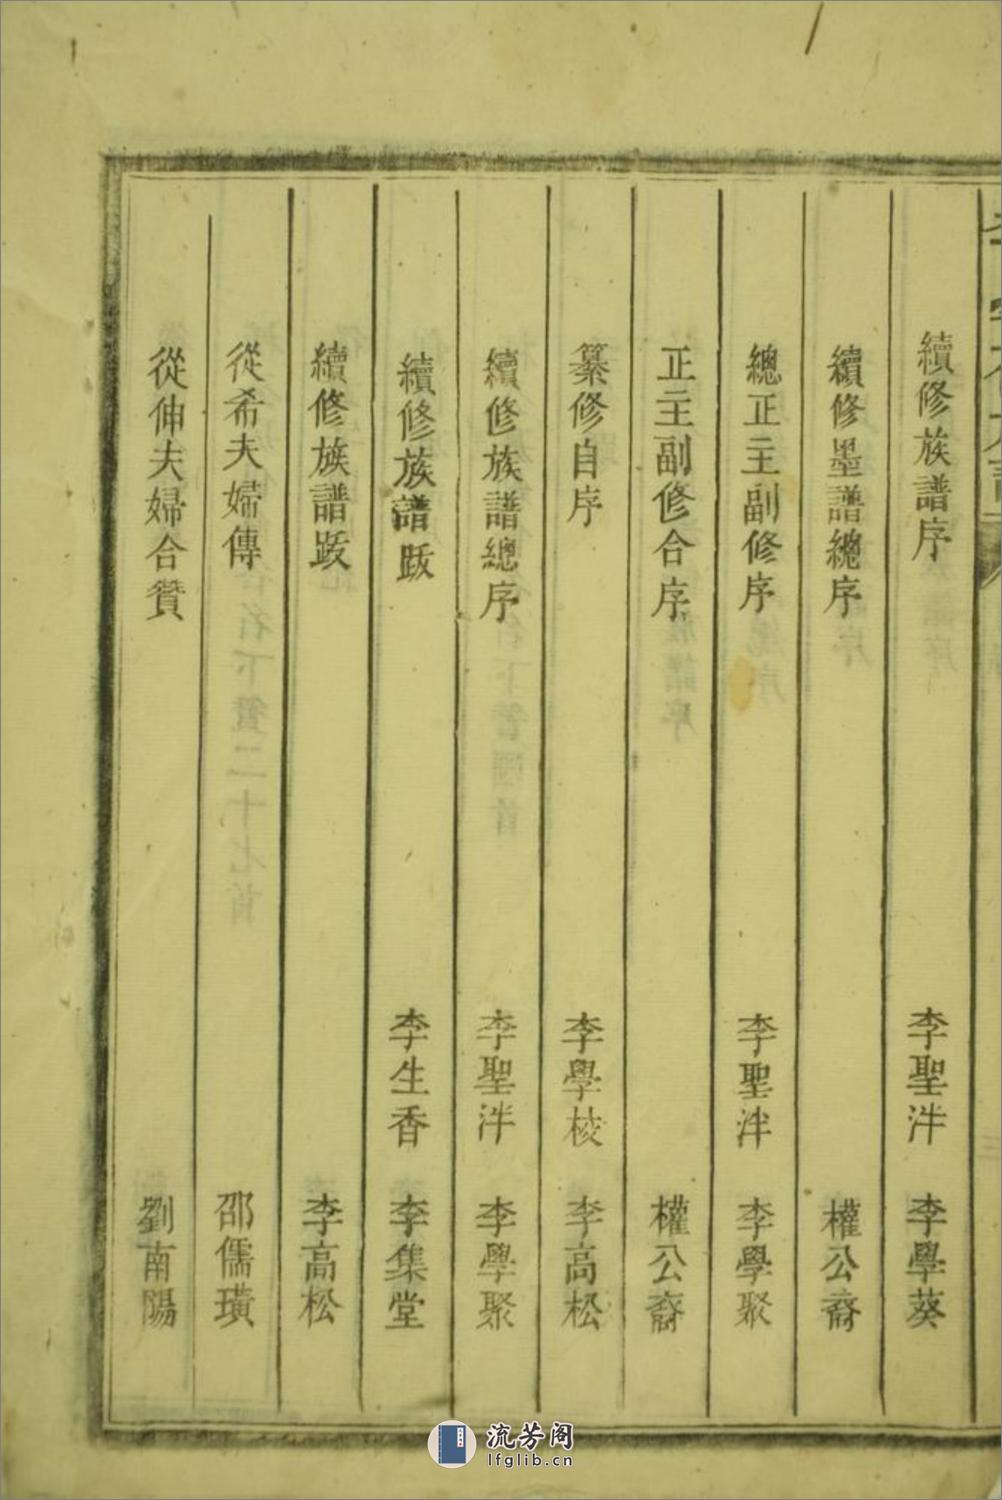 續修族譜序 李聖泮 李學葵
續修墨譜總序 權公裔
總正主副修序 李聖泮 李學聚
正主副修合序 權公裔
纂修自序 李學棱 李高松
續修族譜總序 李聖泮 李學聚
續修族譜跋 李生香 李集堂
續修族譜跋 李高松
從希夫婦傳 邵儒璜
從伸夫婦合贊 劉南陽
流芳阁
lfglib.cn